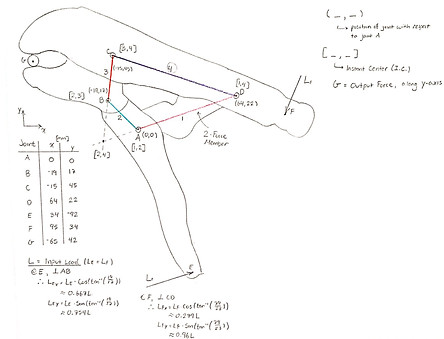 ( _ , _ )
↳ position of joint with respect
to joint A
[ _ , _ ]
↳ Instant Center (I.C.)
G = Output Force, along y-axis
G
C
[3,4]
(-15,45)
4
3
[2,3]
(-19,17)
B
2
A
(0,0)
[1,2]
[2,4]
1
D
[1,4]
(64,22)
L
F
2-Force
Member
y
x
[mm]
Joint x y
A 0 0
B -19 17
C -15 45
D 64 22
E 34 -92
F 95 34
G -65 42
L = Input Load (LE = LF)
@ E, ⊥ AB
∴ LEx = LE · Cos(tan⁻¹(
≈ 0.667L
LEy = LE · Sin(tan⁻¹(
L
E
@ F, ⊥ CD
∴ LFx = LF · Cos(tan⁻¹(
≈ 0.279L
LFy = LF · Sin(tan⁻¹(
≈ 0.96L